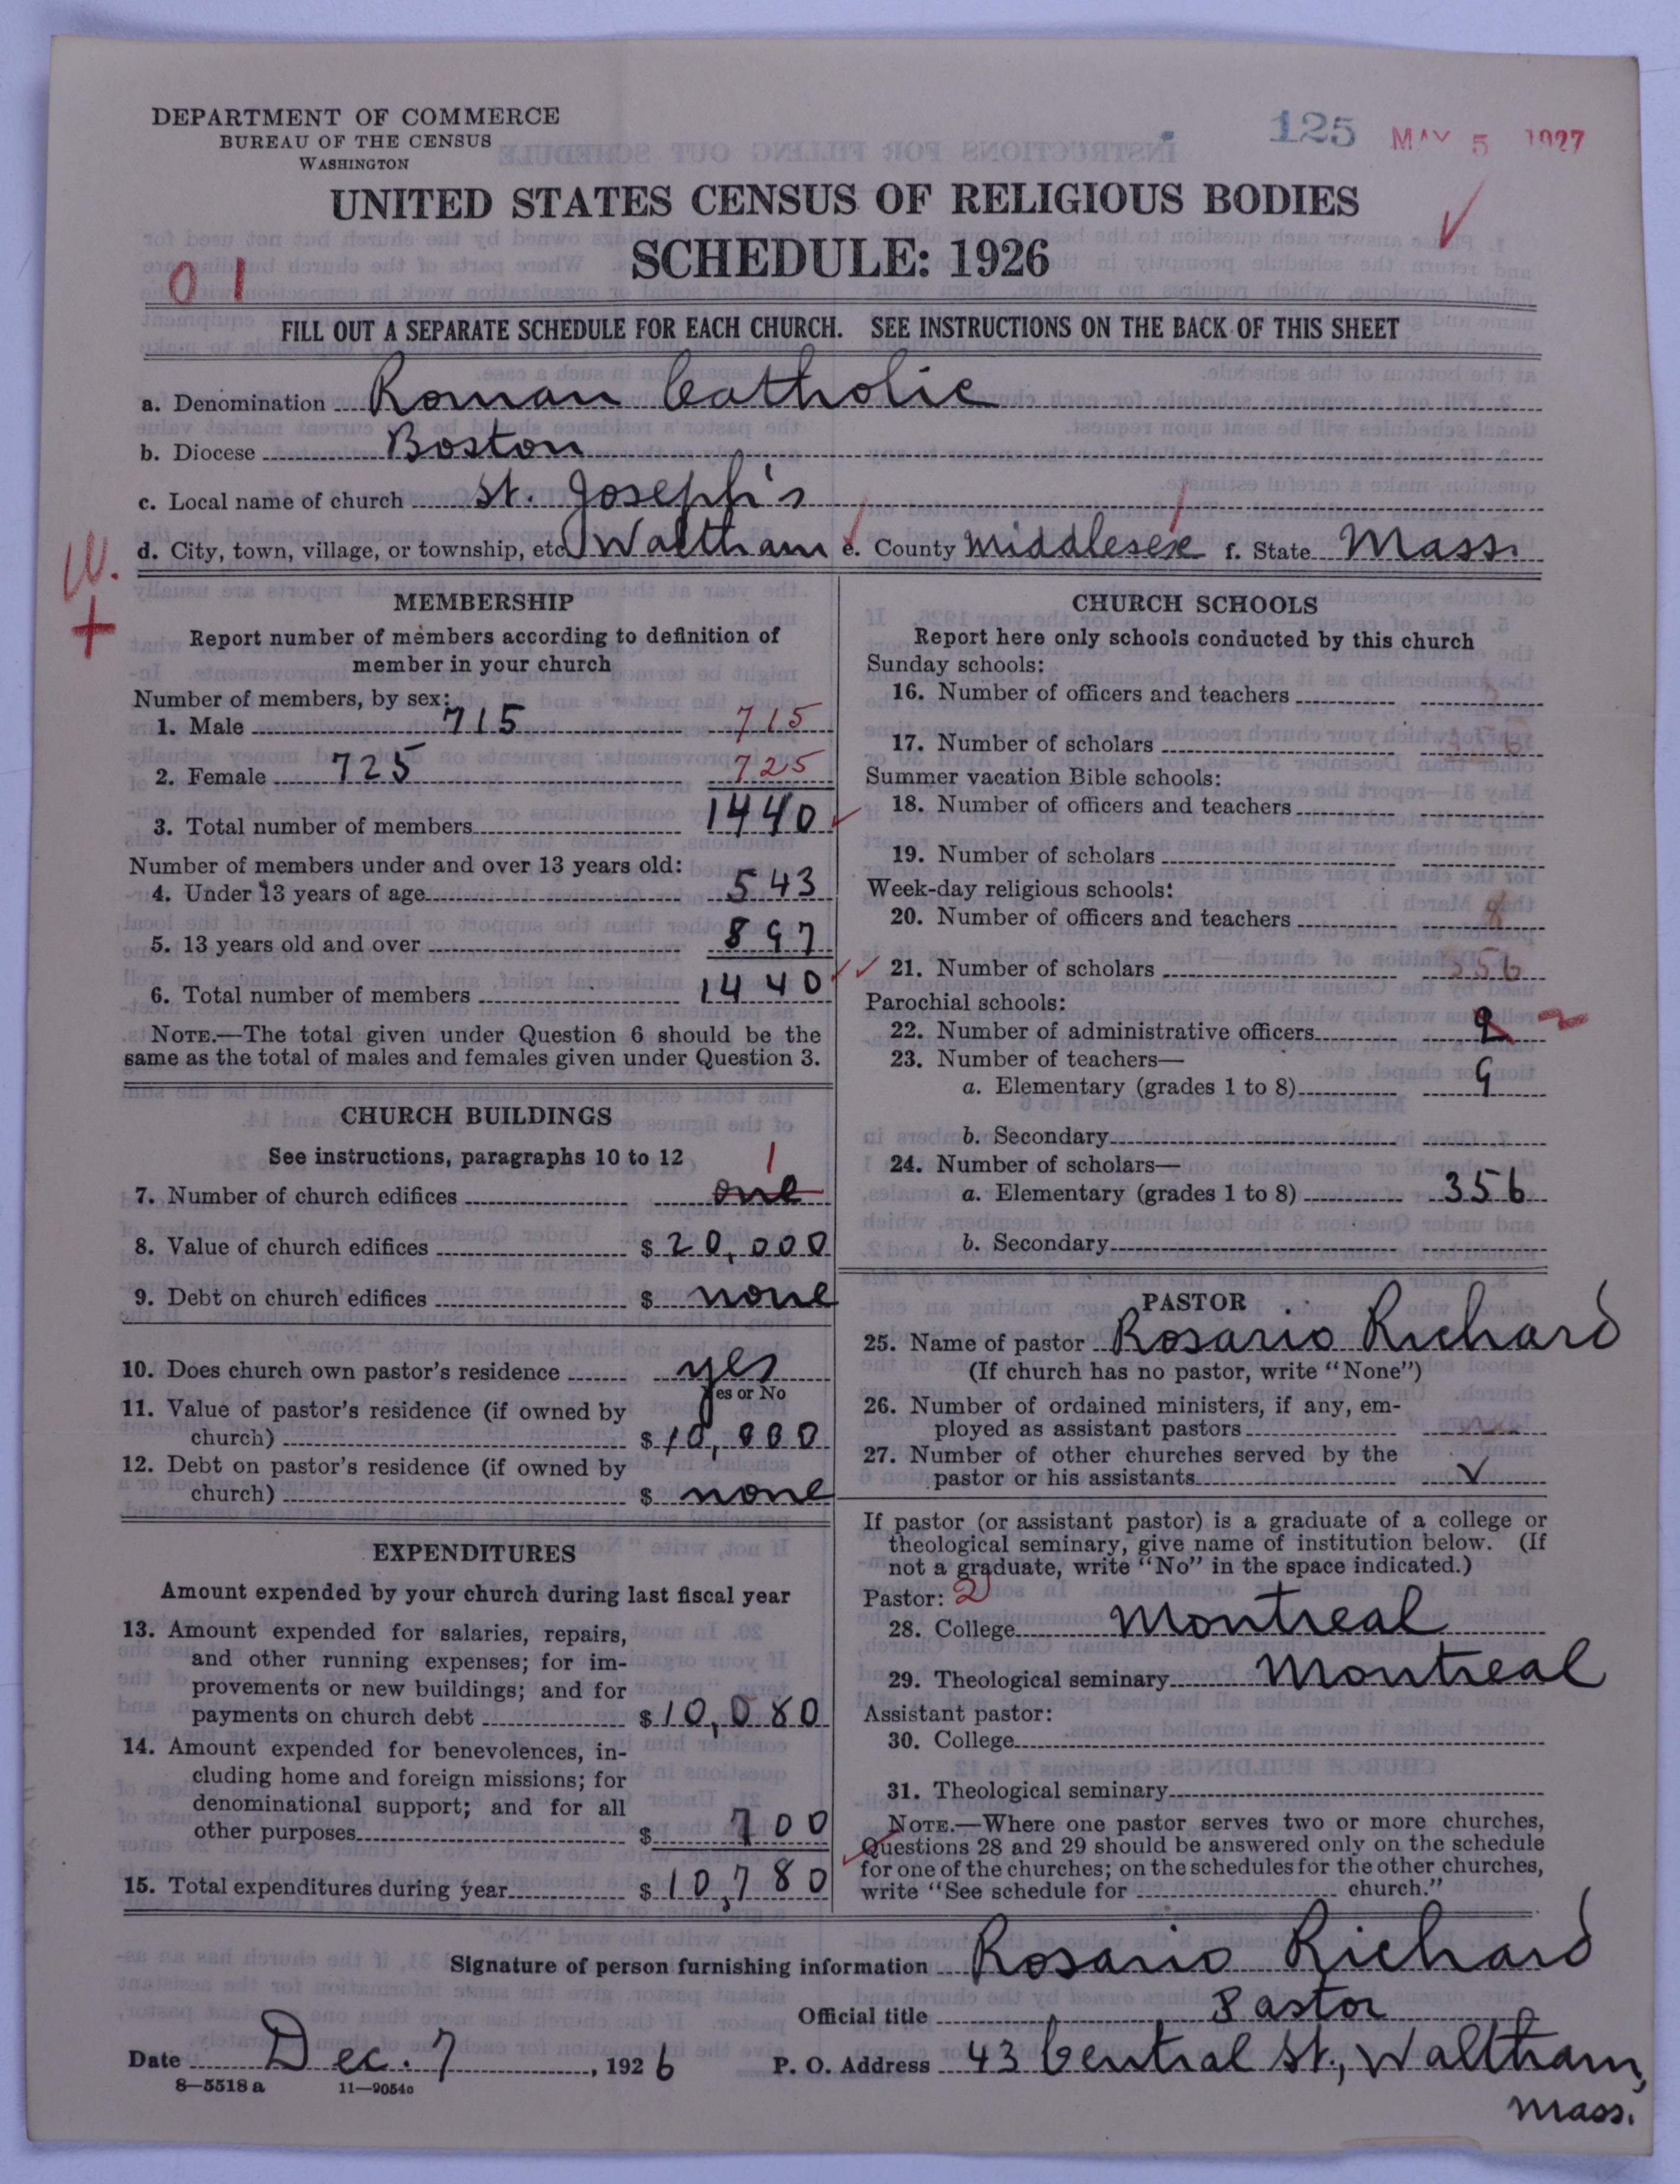 DEPARTMENT OF COMMERCE
BUREAU OF THE CENSUS
WASHINGTON
125 MAY 5 1927
UNITED STATES CENSUS OF RELIGIOUS BODIES
SCHEDULE: 1926
01
FILL OUT A SEPARATE SCHEDULE FOR EACH CHURCH. SEE INSTRUCTIONS ON THE BACK OF THIS SHEET
a. Denomination Roman Catholic
b. Diocese Boston
c. Local name of church St. Joseph's
d. City, town, village, or township, etc. Waltham e. County Middlesex f. State Mass.
W.
+
MEMBERSHIP
Report number of members according to definition of
member in your church
Number of members, by sex:
1. Male 715 715
2. Female 725 725
3. Total number of members 1440
Number of members under and over 13 years old:
4. Under 13 years of age 543
5. 13 years old and over 897
6. Total number of members 1440
NOTE.—The total given under Question 6 should be the
same as the total of males and females given under Question 3.
CHURCH BUILDINGS
See instructions, paragraphs 10 to 12
1
7. Number of church edifices one
8. Value of church edifices $ 20,000
9. Debt on church edifices $ none
10. Does church own pastor's residence yes
Yes or No
11. Value of pastor's residence (if owned by
church) $ 10,000
12. Debt on pastor's residence (if owned by
church) $ none
EXPENDITURES
Amount expended by your church during last fiscal year
13. Amount expended for salaries, repairs,
and other running expenses; for im-
provements or new buildings; and for
payments on church debt $ 10,080
14. Amount expended for benevolences, in-
cluding home and foreign missions; for
denominational support; and for all
other purposes $ 700
15. Total expenditures during year $ 10,780
CHURCH SCHOOLS
Report here only schools conducted by this church
Sunday schools:
16. Number of officers and teachers
17. Number of scholars
Summer vacation Bible schools:
18. Number of officers and teachers
19. Number of scholars
Week-day religious schools:
20. Number of officers and teachers
21. Number of scholars 356
Parochial schools:
22. Number of administrative officers
23. Number of teachers—
a. Elementary (grades 1 to 8) 9
b. Secondary
24. Number of scholars—
a. Elementary (grades 1 to 8) 356
b. Secondary
PASTOR
25. Name of pastor Rosario Richard
(If church has no pastor, write "None")
26. Number of ordained ministers, if any, em-
ployed as assistant pastors
27. Number of other churches served by the
pastor or his assistants
If pastor (or assistant pastor) is a graduate of a college or
theological seminary, give name of institution below. (If
not a graduate, write "No" in the space indicated.)
Pastor: 2
28. College Montreal
29. Theological seminary Montreal
Assistant pastor:
30. College
31. Theological seminary
NOTE.—Where one pastor serves two or more churches,
Questions 28 and 29 should be answered only on the schedule
for one of the churches; on the schedules for the other churches,
write "See schedule for church."
Signature of person furnishing information Rosario Richard
Official title Pastor
Date Dec. 7, 1926 P. O. Address 43 Central St., Waltham,
Mass.
8—5518 a 11—9054a